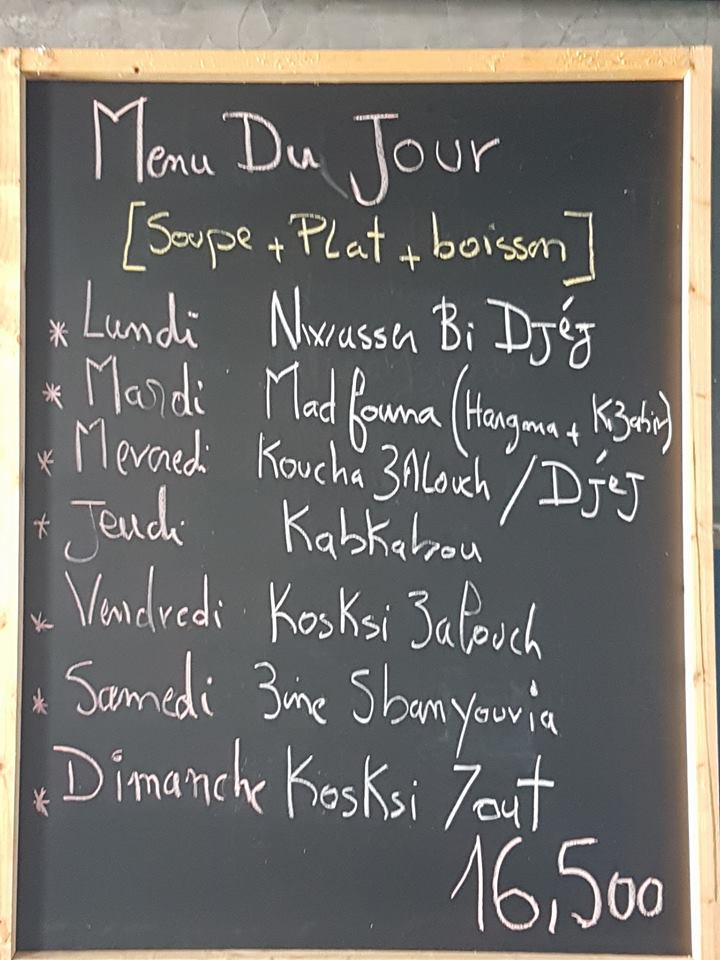 Menu Du Jour
[Soupe + Plat + boisson]
* Lundi Nwasser Bi Djéj
* Mardi Madfouna (Hargma + K3abir)
* Mercredi Koucha 3Alouch / Djéj
* Jeudi Kabkabou
* Vendredi Kosksi 3alouch
* Samedi 3ine Sbanyouria
* Dimanche Kosksi 7out
16,500